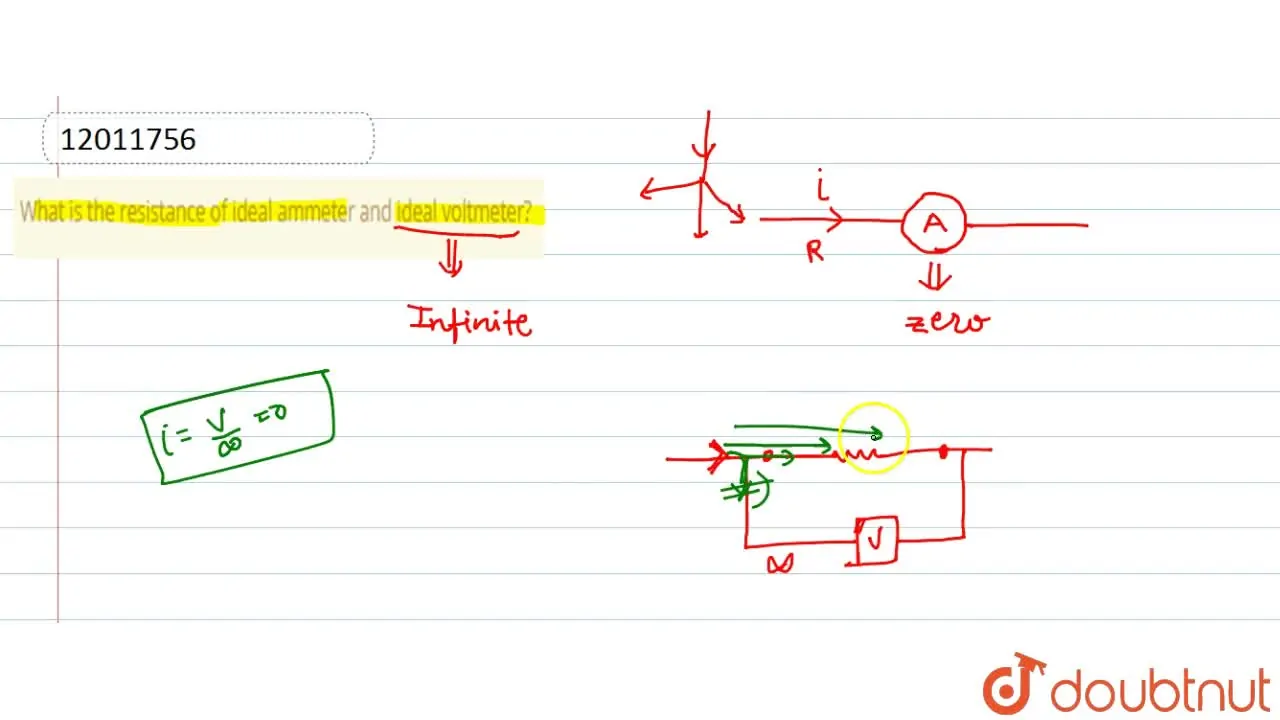 12011756
What is the resistance of ideal ammeter and ideal voltmeter?
Infinite
i
A
R
zero
i = V/∞ = 0
V
∞
doubtnut